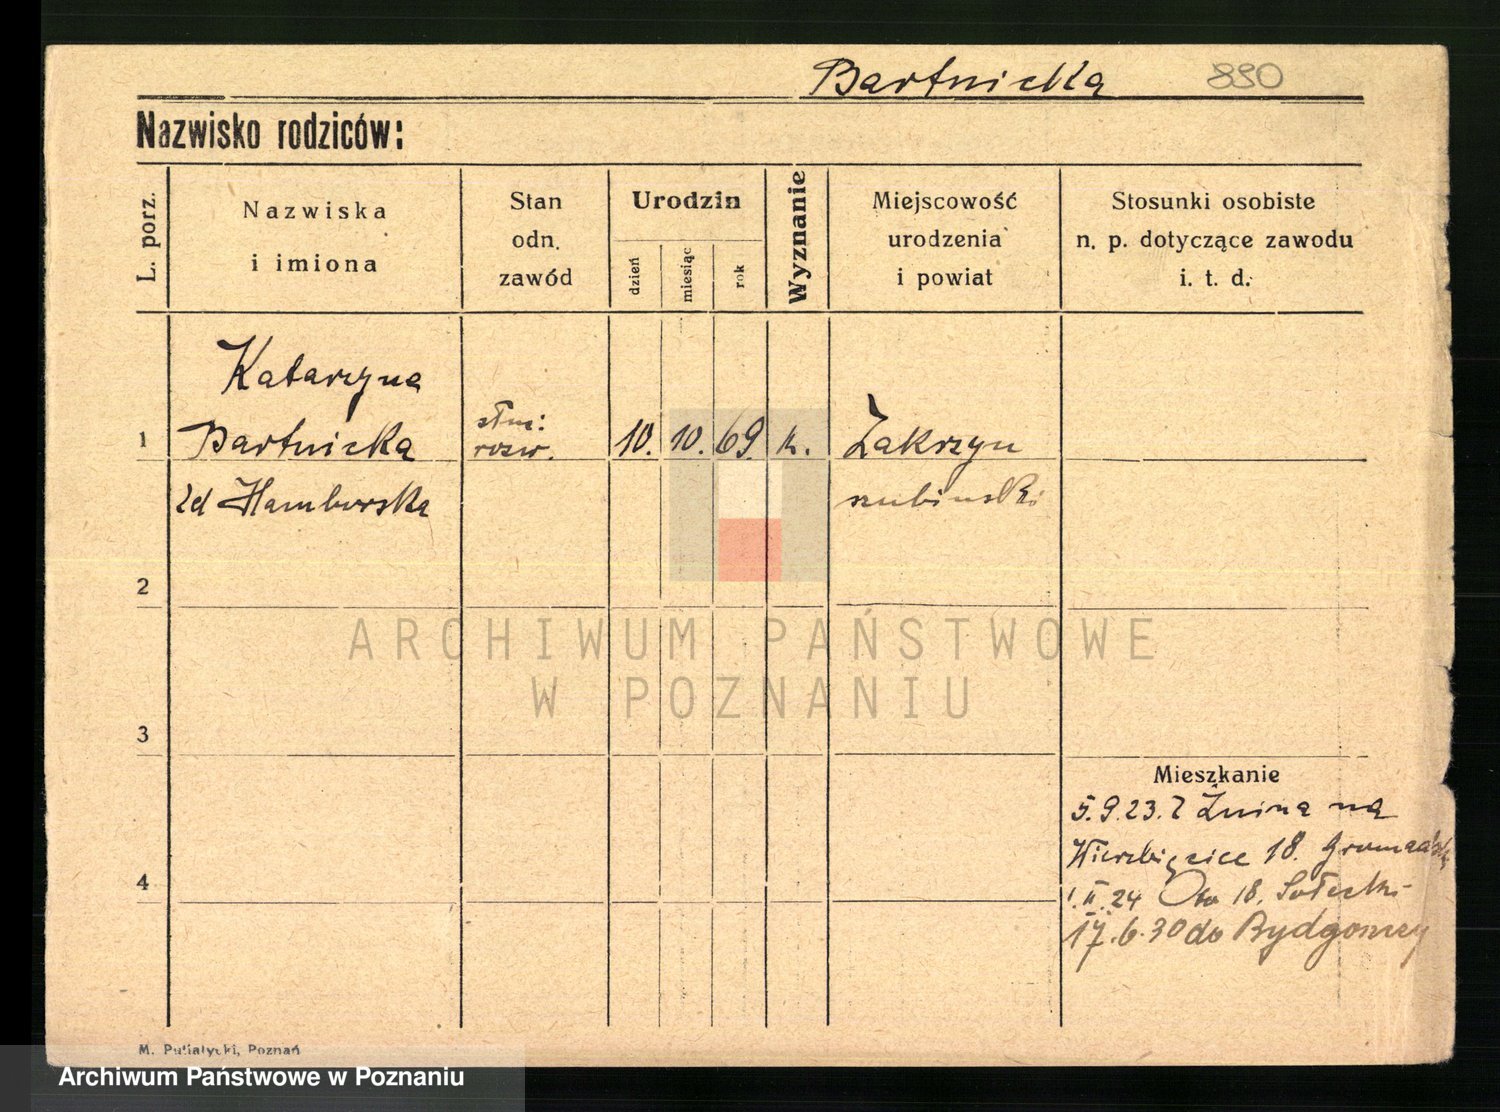 Bartnicka 890
Nazwisko rodziców:
L. porz.
Nazwiska
i imiona
Stan
odn.
zawód
Urodzin
dzień
miesiąc
rok
Wyznanie
Miejscowość
urodzenia
i powiat
Stosunki osobiste
n. p. dotyczące zawodu
i. t. d.
Katarzyna
1 Bartnicka rozw. 10. 10. 69. k. Zakrzyn
zd Hamborska szubinski
2
3
4
Mieszkanie
5.9.23. z Żnina na
Wierzbięcice 18.
1.II.24 18. Sołecki
17.6.30 do Bydgoszczy
ARCHIWUM PAŃSTWOWE
W POZNANIU
M. Putiatycki, Poznań
Archiwum Państwowe w Poznaniu